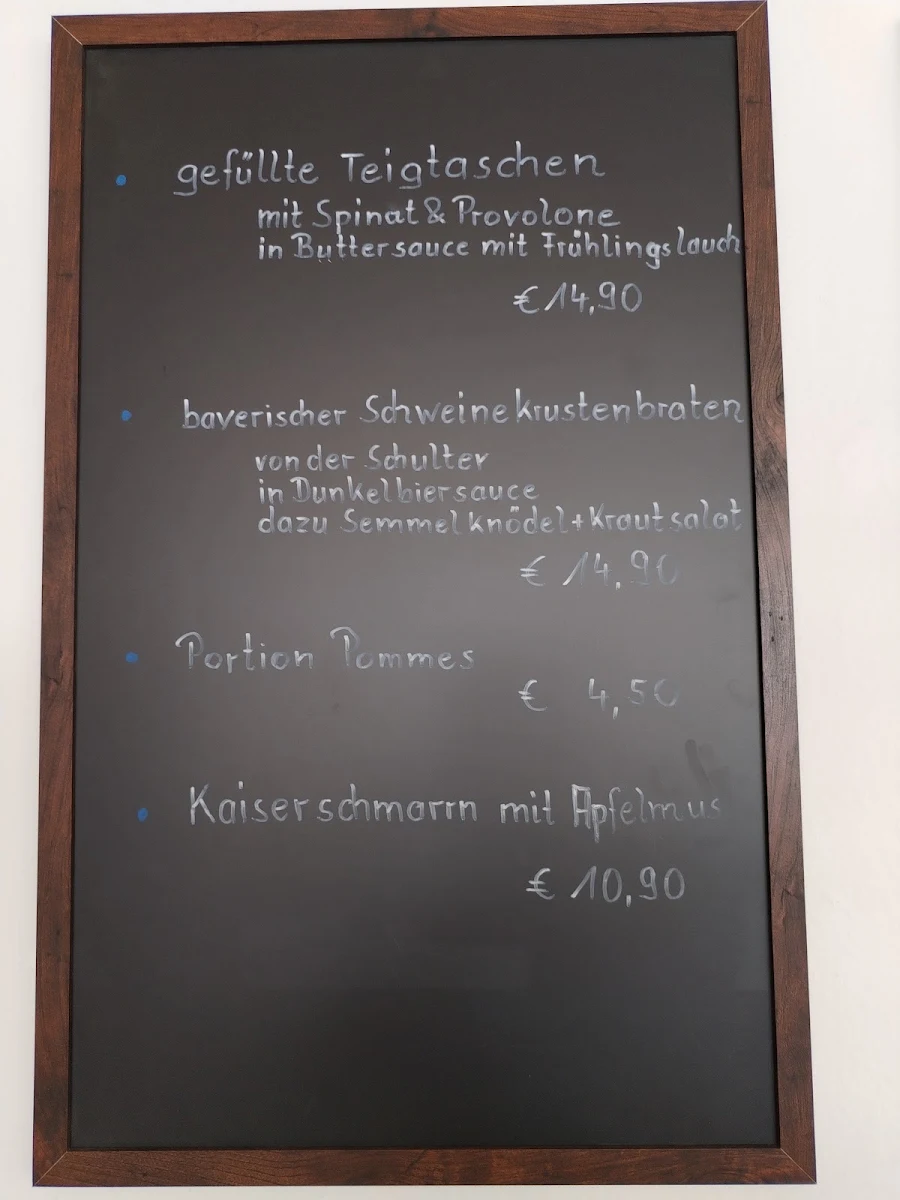 • gefüllte Teigtaschen
mit Spinat & Provolone
in Buttersauce mit Frühlingslauch
€ 14,90
• bayerischer Schweinekrustenbraten
von der Schulter
in Dunkelbiersauce
dazu Semmelknödel + Krautsalat
€ 14,90
• Portion Pommes
€ 4,50
• Kaiserschmarrn mit Apfelmus
€ 10,90